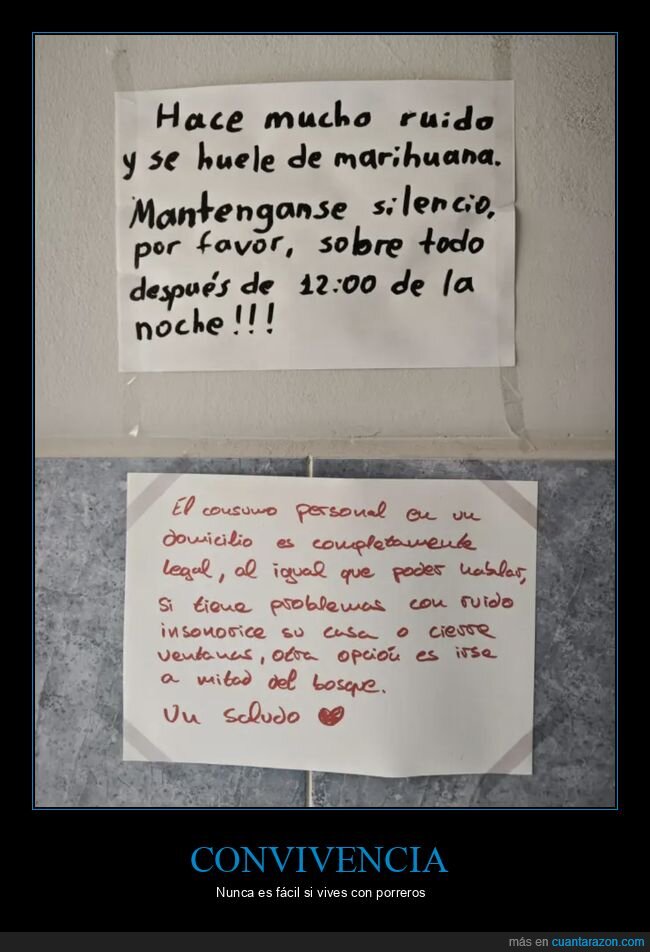 Hace mucho ruido
y se huele de marihuana.
Mantenganse silencio,
por favor, sobre todo
después de 12:00 de la
noche!!!
El consumo personal en un
domicilio es completamente
legal, al igual que poder hablar,
si tiene problemas con ruido
insonorice su casa o cierre
ventanas, otra opción es irse
a mitad del bosque.
Un saludo ♥
CONVIVENCIA
Nunca es fácil si vives con porreros
más en cuantarazon.com